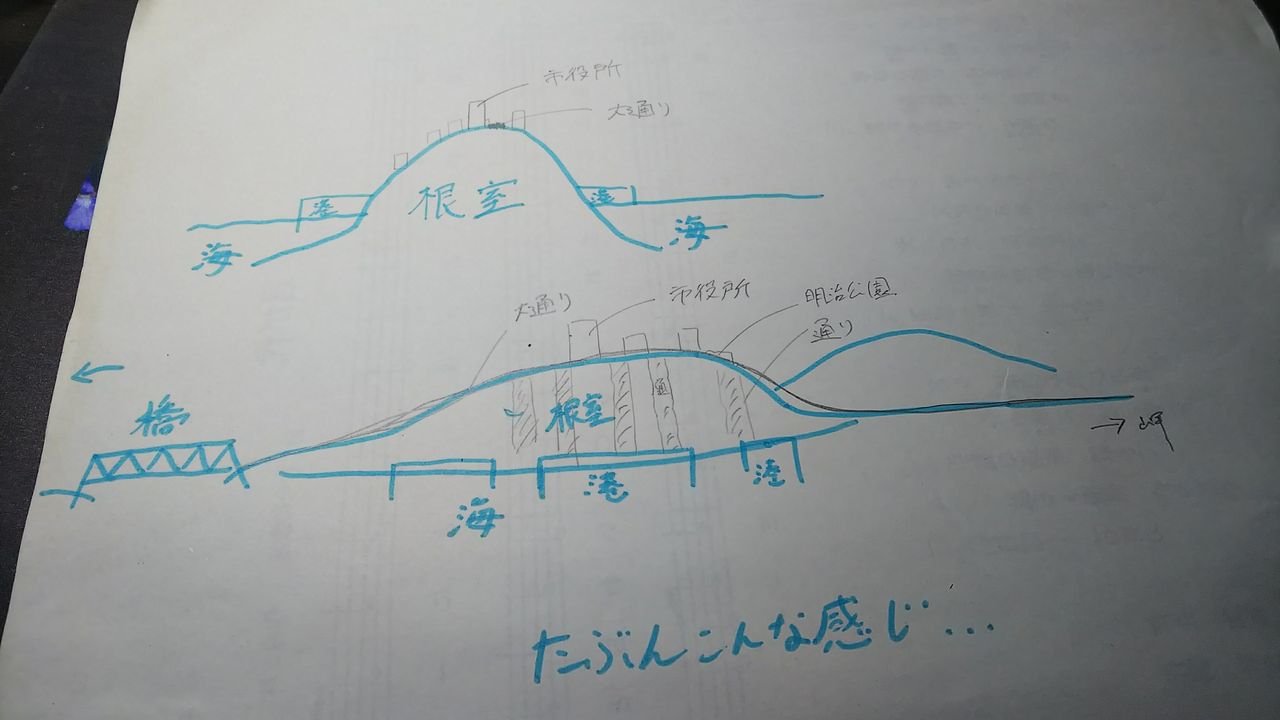 市役所
大通り
根室
港
港
海
海
大通り
市役所
明治公園
通り
橋
根室
通
→岬
港
港
海
たぶんこんな感じ...